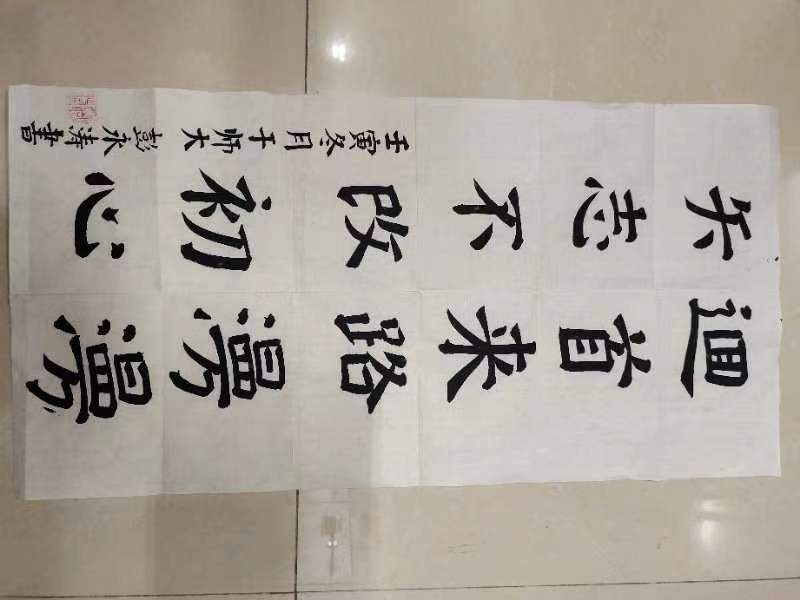 迴首来路漫漫
矢志不改初心
壬寅冬月于师大彭永涛書